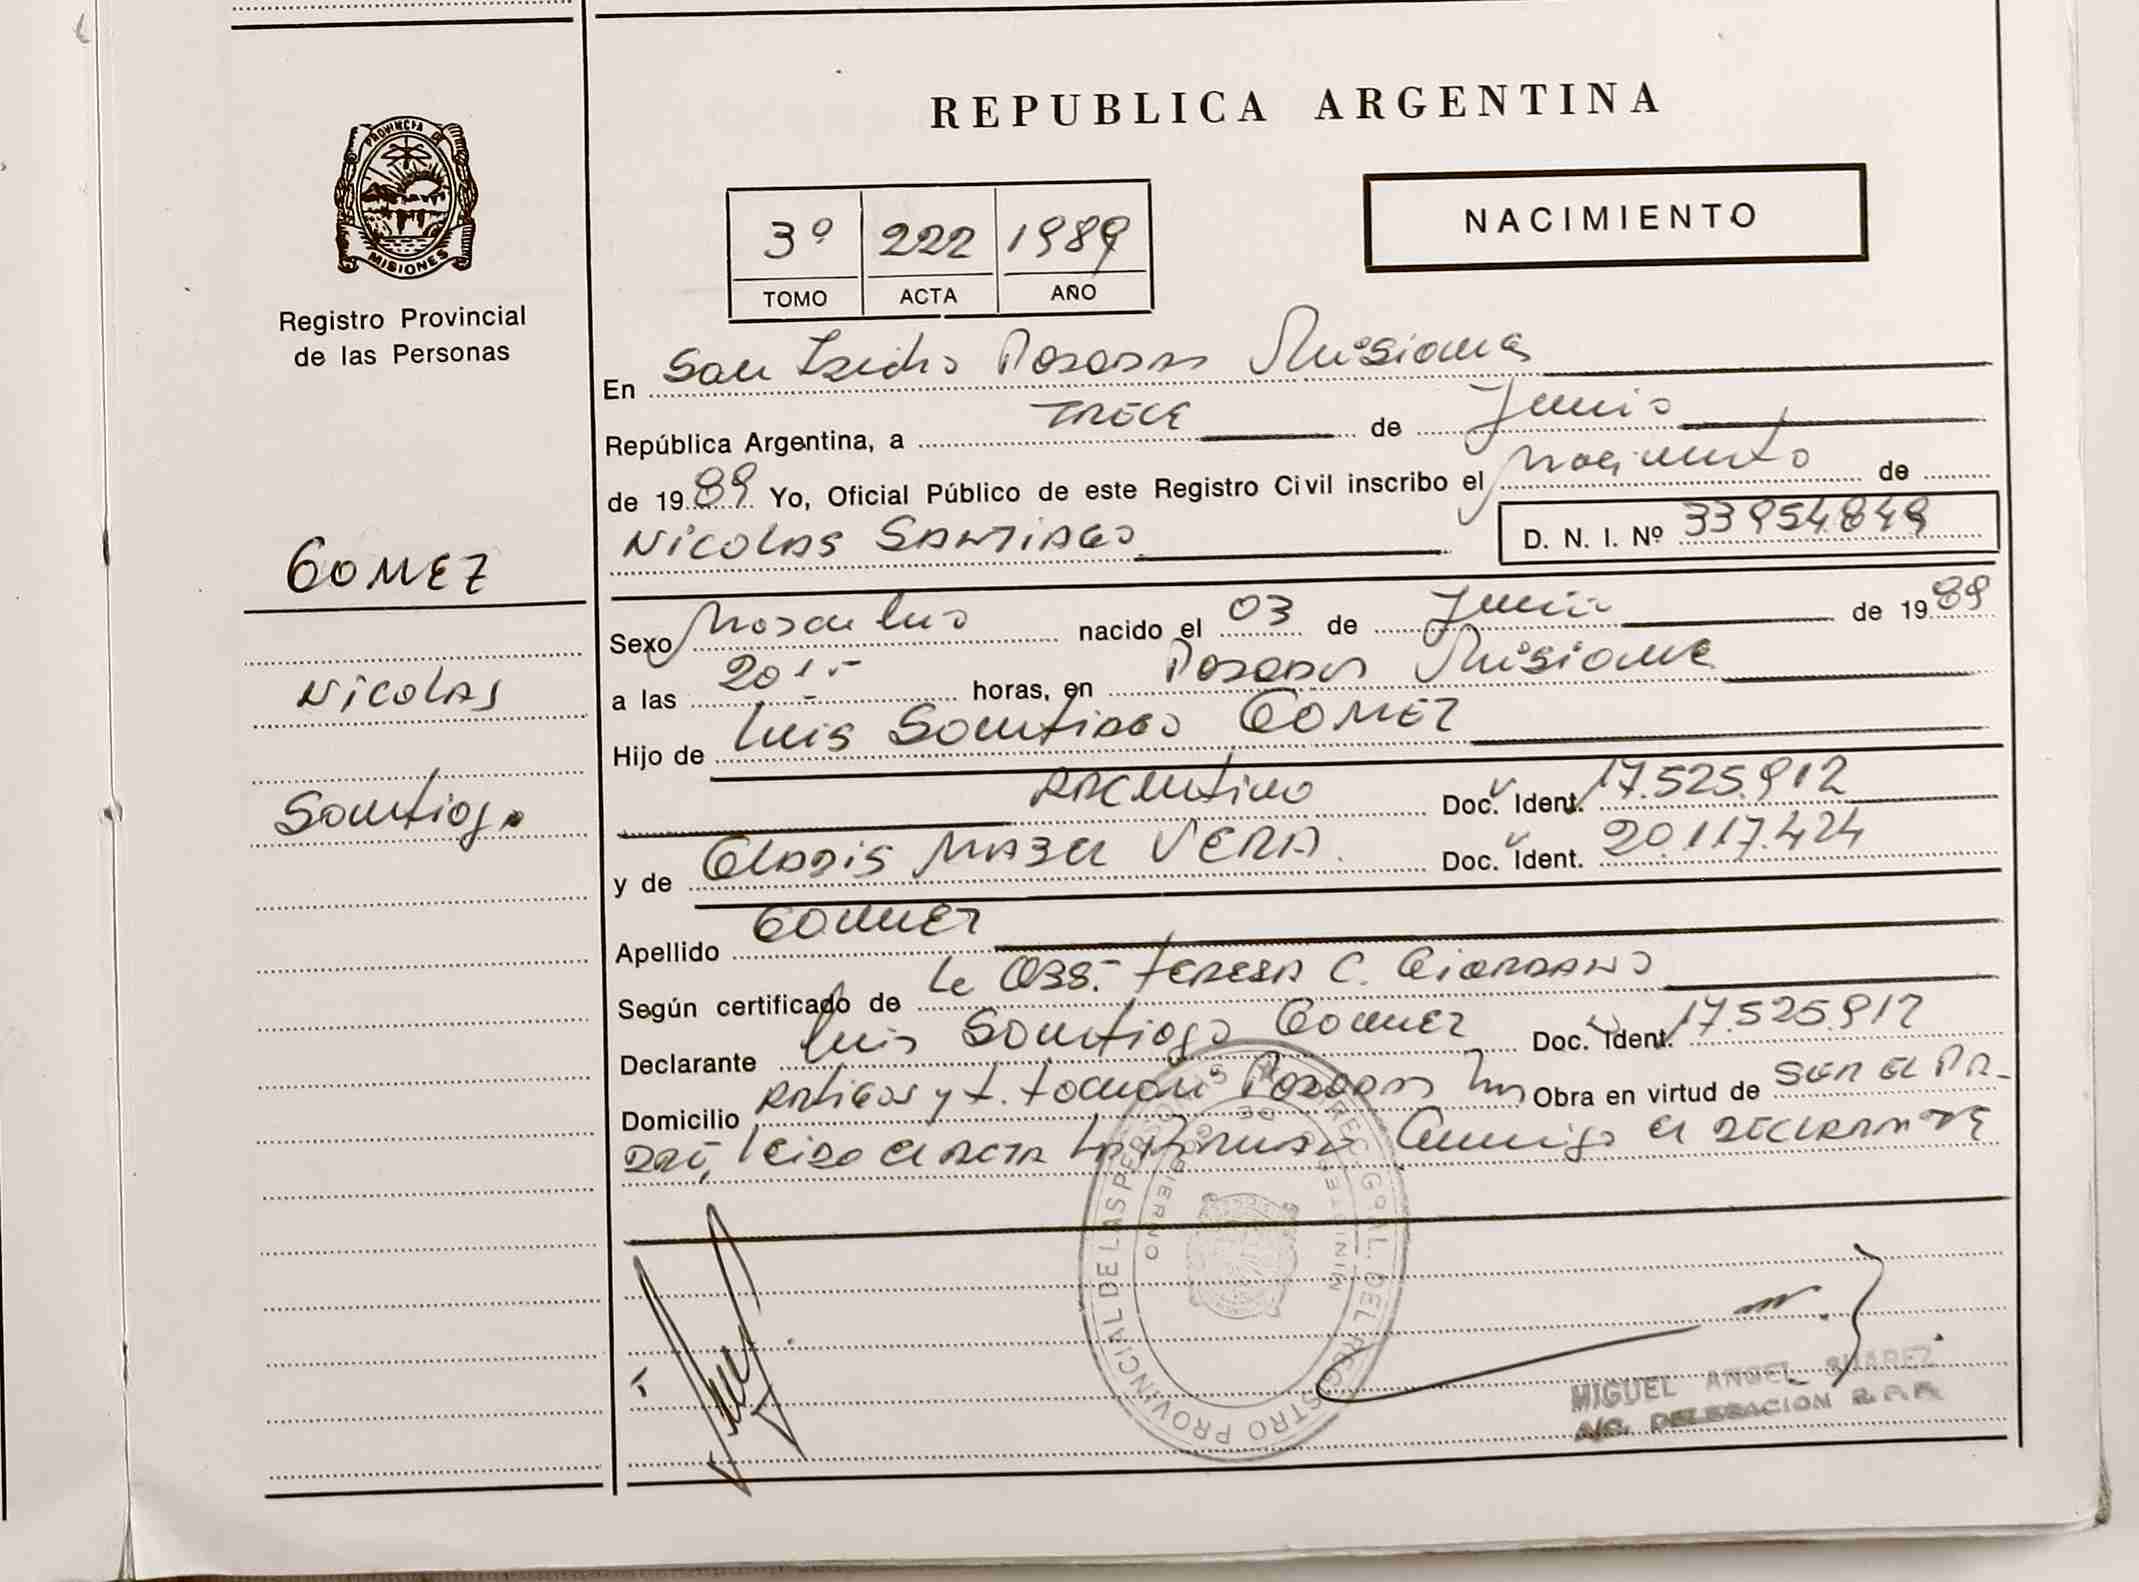 REPUBLICA ARGENTINA
PROVINCIA DE MISIONES
Registro Provincial
de las Personas
NACIMIENTO
3º 222 1989
TOMO ACTA AÑO
En San Isidro Posadas Misiones
República Argentina, a TRECE de Junio
de 1989 Yo, Oficial Público de este Registro Civil inscribo el Nacimiento de
NICOLAS SANTIAGO D. N. I. Nº 33954849
GOMEZ
Nicolas
Santiago
Sexo Masculino nacido el 03 de Junio de 1989
a las 20 horas, en Posadas Misiones
Hijo de Luis Santiago GOMEZ
Argentino Doc. Ident. 17.525.912
y de Gladis Mabel VERA Doc. Ident. 20.117.424
Apellido GOMEZ
Según certificado de la Obs. Teresa C. Giordano
Declarante Luis Santiago Gomez Doc. Ident. 17.525.912
Domicilio Artigas y T. Posadas Mnes Obra en virtud de SER EL PA-
dre, leida el acta la firma conmigo el declarante
DIREC. GRAL. DEL REGISTRO PROVINCIAL DE LAS PERSONAS
MINISTERIO DE GOBIERNO
MIGUEL ANGEL SUAREZ
A/C. DELEGACION R.P.P.